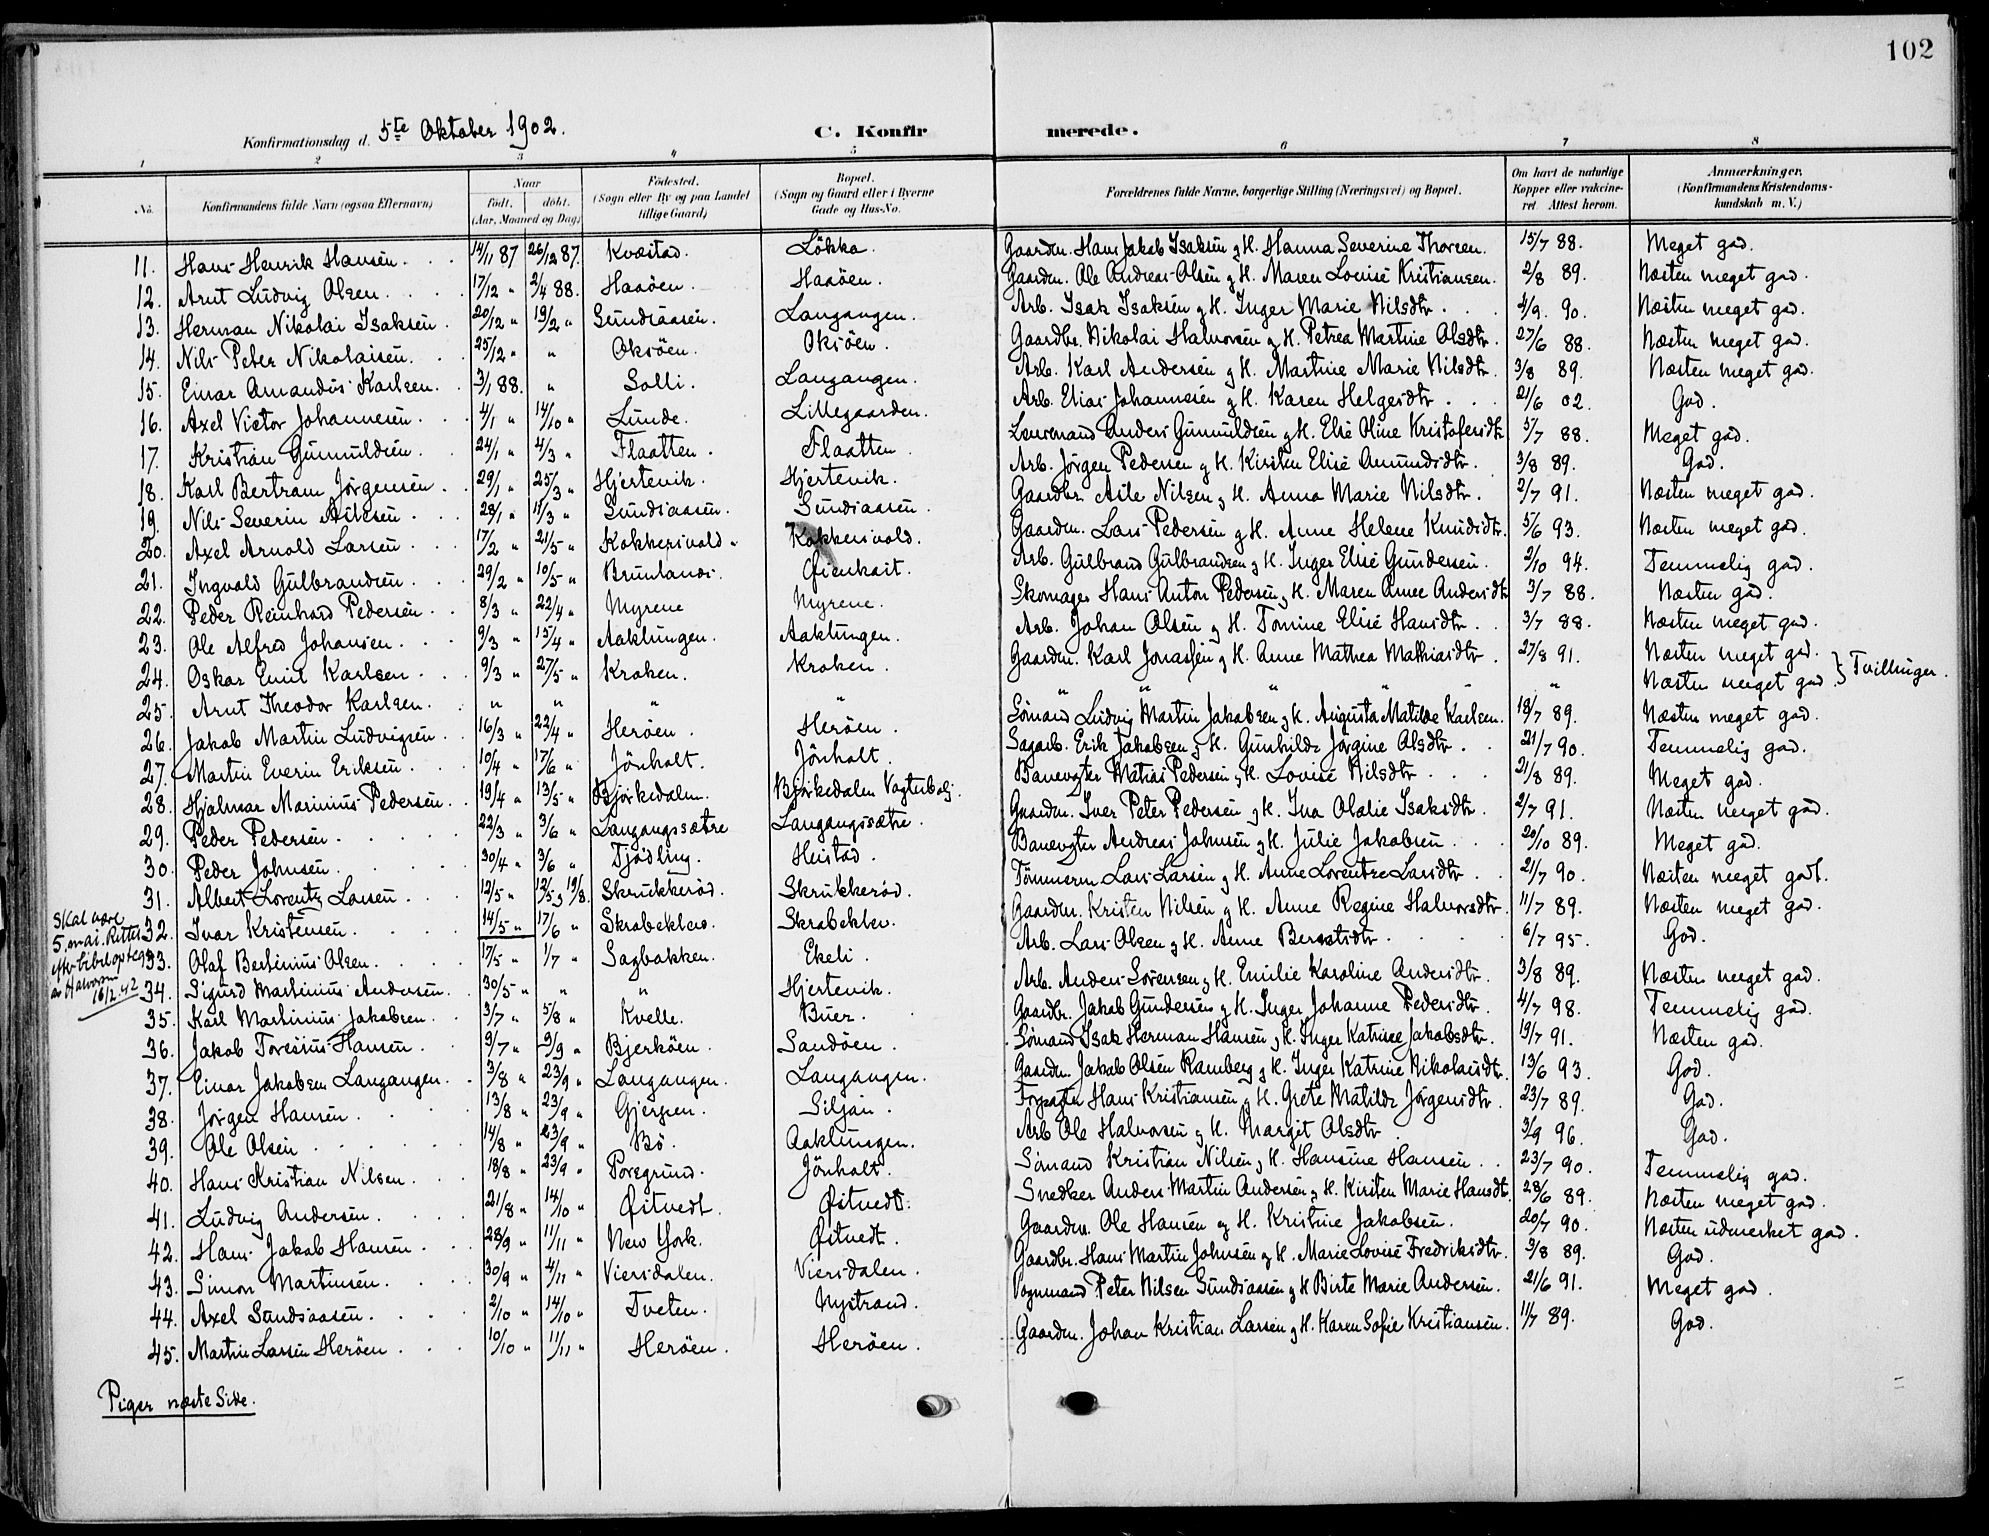 102
Konfirmationsdag d. 5te Oktober 1902. C. Konfirmerede.
1 2 3 4 5 6 7 8
No. Konfirmandens fulde Navn (ogsaa Efternavn) Naar født. døbt. (Aar, Maaned og Dag) Fødested. (Sogn eller By og paa Landet tillige Gaard) Bopæl. (Sogn og Gaard eller i Byerne Gade og Hus-No. Forældrenes fulde Navne, borgerlige Stilling (Næringsvei) og Bopæl. Om havt de naturlige Kopper eller vakcineret. Attest herom. Anmærkninger, (Konfirmandens Kristendomskundskab m. V.)
11. Hans Henrik Hansen. 14/11 87 26/12 87. Kvæstad. Løkka. Gaardm. Hans Jakob Isaksen og H. Hanna Severine Thorsen. 15/7 88. Meget god.
12. Arnt Ludvig Olsen. 17/12 " 2/4 88. Haaøen. Haaøen. Gaardm. Ole Andreas Olsen og H. Maren Lovise Kristiansen. 2/8 89. Næsten meget god.
13. Herman Nikolai Isaksen. 20/12 " 19/2 " Sundsaasen. Langangen. Arb. Isak Isaksen og H. Inger Marie Nilsdtr. 4/9 90. Næsten meget god.
14. Nils Peter Nikolaisen. 25/12 " " Oksøen. Oksøen. Gaardbr. Nikolai Halvorsen og H. Petrea Martine Olsdtr. 27/6 88. Næsten meget god.
15. Einar Amandus Karlsen. 3/1 88. " Solli. Langangen. Arb. Karl Andersen og H. Martine Marie Nilsdtr. 3/8 89. Næsten meget god.
16. Axel Victor Johannesen. 4/1 " 14/10 " Lunde. Lillegaarden. Arb. Elias Johannesen og H. Karen Helgesdtr. 21/6 02. God.
17. Kristian Gunnuldsen. 24/1 " 4/3 " Flaatten. Flaatten. Anders Gunnuldsen og H. Else Oline Kristofersdtr 5/7 88. Meget god.
18. Karl Bertram Jørgensen. 29/1 " 25/3 " Hjertevik. Hjertevik. Arb. Jørgen Pedersen og H. Kirsten Elise Amundsdtr. 3/8 89. God.
19. Nils Severin Aslesen. 28/1 " 11/3 " Sundsaasen. Sundsaasen. Gaardbr. Asle Nilsen og H. Anna Marie Nilsdtr. 2/7 91. Næsten meget god.
20. Axel Arnold Larsen. 17/2 " 21/5 " Kokkersvold. Kokkersvold. Gaardm. Lars Pedersen og H. Anne Helene Knudsdtr. 5/6 93. Næsten meget god.
21. Ingvald Gulbrandsen. 29/2 " 10/5 " Brunlands. Øienkast. Arb. Gulbrand Gulbrandsen og H. Inger Elise Gundersen. 2/10 94. Temmelig god.
22. Peder Reinhard Pedersen. 8/3 " 22/4 " Myrene Myrene. Skomager Hans Anton Pedersen og H. Maren Anne Andersdtr 3/7 88. Næsten god.
23. Ole Alfred Johansen. 9/3 " 15/4 " Aaklungen. Aaklungen. Arb. Johan Olsen og H. Tomine Elise Hansdtr. 3/7 88. Næsten meget god.
24. Oskar Emil Karlsen. 9/3 " 27/5 " Kroken. Kroken. Gaardm. Karl Jonassen og H. Anne Mathea Mathiasdtr. 27/8 91. Næsten meget god.
25. Arnt Theodor Karlsen. " " " " " " " " " Næsten meget god } Tvillinger.
26. Jakob Martin Ludvigsen. 16/3 " 22/4 " Herøen. Herøen. Sømand Ludvig Martin Jakobsen og H. Augusta Matilde Karlsen. 18/7 89. Næsten meget god.
27. Martin Everin Eriksen. 10/4 " 17/6 " Jønholt. Jønholt. Sagarb. Erik Jakobsen og H. Gunhilde Jørgine Olsdtr. 21/7 90. Temmelig god.
28. Hjalmar Marinius Pedersen. 19/4 " 13/5 " Bjørkedalen. Bjørkedalen Vogterbolj. Banevogter Matias Pedersen og H. Lovise Nilsdtr. 21/8 89. Meget god.
29. Peder Pedersen. 22/3 " 3/6 " Langangssætre Langangssætre. Gaardm. Iver Peter Pedersen og H. Ina Olælie Isaksdtr. 2/7 91. Næsten meget god.
30. Peder Johnsen. 30/4 " 3/6 " Tjødling. Heistad. Banevogter Andreas Johnsen og H. Julie Jakobsen. 20/10 89. Meget god.
31. Albert Lorentz Larsen. 12/5 " 12/5, 19/8. Skrukkerød. Skrukkerød. Tømmerm. Lars Larsen og H. Anne Lorentze Larsdtr. 21/7 90. Næsten meget godt.
32. Ivar Kristensen. 14/5 " 17/6 " Skrabeklev. Skrabeklev. Gaardm. Kristen Nilsen og H. Anne Regine Halvorsdtr. 11/7 89. Næsten meget god.
Skal være 5. mai. Rettet efter av Halvorsen 16/2.42
33. Olaf Berthinius Olsen. 17/5 " 1/7 " Sagbakken. Ekeli. Arb. Lars Olsen og H. Anne 6/7 95. God.
34. Sigurd Martinius Andersen. 30/5 " " " Hjertevik. Arb. Anders Sørensen og H. Emilie Karoline Andersdtr. 3/8 89. Næsten meget god.
35. Karl Martinius Jakobsen. 3/7 " 5/8 " Kvelle. Buer. Gaardbr. Jakob Gundersen og H. Inger Johanne Pedersdtr. 4/7 98. Temmelig god.
36. Jakob Toresius Hansen. 9/7 " 9/9 " Bjerkøen. Sandøen. Sømand Isak Herman Hansen og H. Inger Katrine Jakobsdtr. 19/7 91. Næsten god.
37. Einar Jakobsen Langangen. 3/8 " 23/9 " Langangen. Langangen. Gaardm. Jakob Olsen Ramberg og H. Inger Katrine Nikolaisdtr. 13/6 93. God.
38. Jørgen Hansen. 13/8 " 23/9 " Gjerpen. Siljan. Forpagter Hans Kristiansen og H. Grete Matilde Jørgensdtr. 23/7 89. God.
39. Ole Olsen 14/8 " 23/9 " Bø. Aaklungen. Arb Ole Halvorsen og H. Margit Olsdtr 3/9 96. God.
40. Hans Kristian Nilsen. 18/8 " 23/9 " Porsgrund. Jønholt. Sømand Kristian Nilsen og H. Hansine Hansen. 23/7 90. Temmelig god.
41. Ludvig Andersen. 21/8 " 14/10 " Østvedt. Østvedt. Snedker Anders Martin Andersen og H. Kirsten Marie Hansdtr. 28/6 89. Næsten meget god.
42. Hans Jakob Hansen. 28/9 " 11/11 " New York. Østvedt. Gaardm. Ole Hansen og H. Kristine Jakobsen. 20/7 90. Næsten udmerket god.
43. Simon Martinsen. 30/9 " 4/11 " Viersdalen. Viersdalen. Gaardbr. Hans Martin Johnsen og H. Marie Lovise Fredriksdtr. 9/8 89. God.
44. Axel Sundsaasen. 2/10 " 14/10 " Tveten. Nystrand. Vognmand Peter Nilsen Sundsaasen og H Birte Marie Andersen. 21/6 91. Meget god.
45. Martin Larsen Herøen. 10/10 " 11/11 " Herøen. Herøen. Gaardm. Johan Kristian Larsen og H. Karen Sofie Kristiansen. 11/7 89. God.
Piger næste Side.